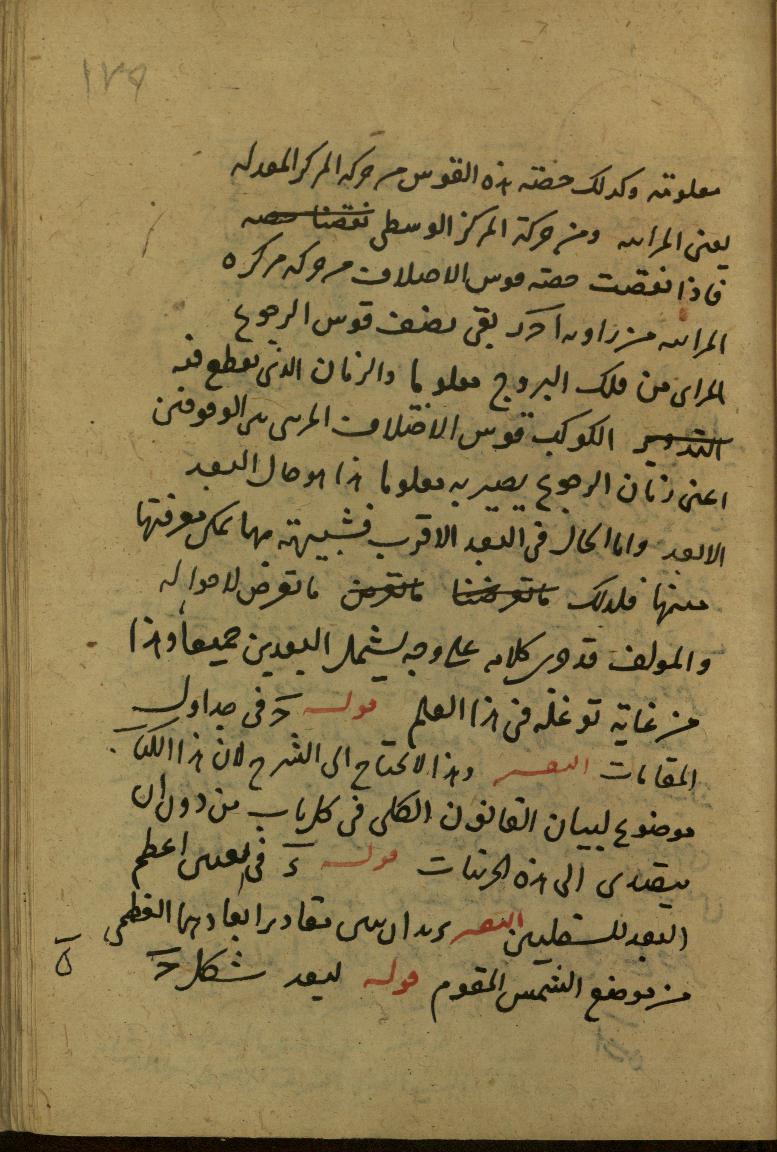 ١٧٩
معلومة وكذلك حصة هذه القوس من حركة المركز المعدلة
يعني المرئية ومن حركة المركز الوسطى نقصنا حصه
فاذا نقصت حصة قوس الاختلاف من حركة مركزه
المرئية من زاوية ا حـ د بقي نصف قوس الرجوع
المرئي من فلك البروج معلوما والزمان الذي يقطع فيه
التدوير الكوكب قوس الاختلاف المرئي بين الوقوفين
اعني زمان الرجوع يصير به معلوما هذا هو حال البعد
الابعد واما الحال في البعد الاقرب فشبيهة بها يمكن معرفتها
منها فلذلك ما تعرضنا ما تعرض ما تعرض لاحواله
والمؤلف قد كلامه على وجه يشمل البعدين جميعا وهذا
من غاية توغله في هذا العلم قوله حـ في جداول
المقامات التفسير وهذا لا يحتاج الى الشرح لان هذا الكتاب
موضوع لبيان القانون الكلي في كل باب من دون ان
يتعدى الى هذه الجزئيات قوله ء في تعيين اعظم
البعد للسفليين التفسير يريد ان يبين مقادير ابعادهما العظمى
من موضع الشمس المقوم قوله ليعد شكل حـ